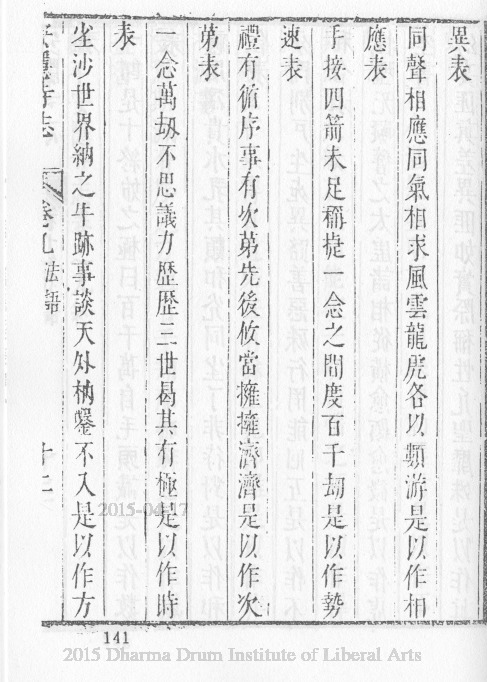 異表
同聲相應同氣相求風雲龍虎各以類游是以作相
應表
手接四箭未足稱捷一念之間度百千劫是以作勢
速表
禮有循序事有次第先後攸當擁擁濟濟是以作次
第表
一念萬劫不思議力歷歷三世曷其有極是以作時
表
塵沙世界納之牛跡事談天外枘鑿不入是以作方
隱寺志
卷九 法語
十二
2015-04-17
141
2015 Dharma Drum Institute of Liberal Arts